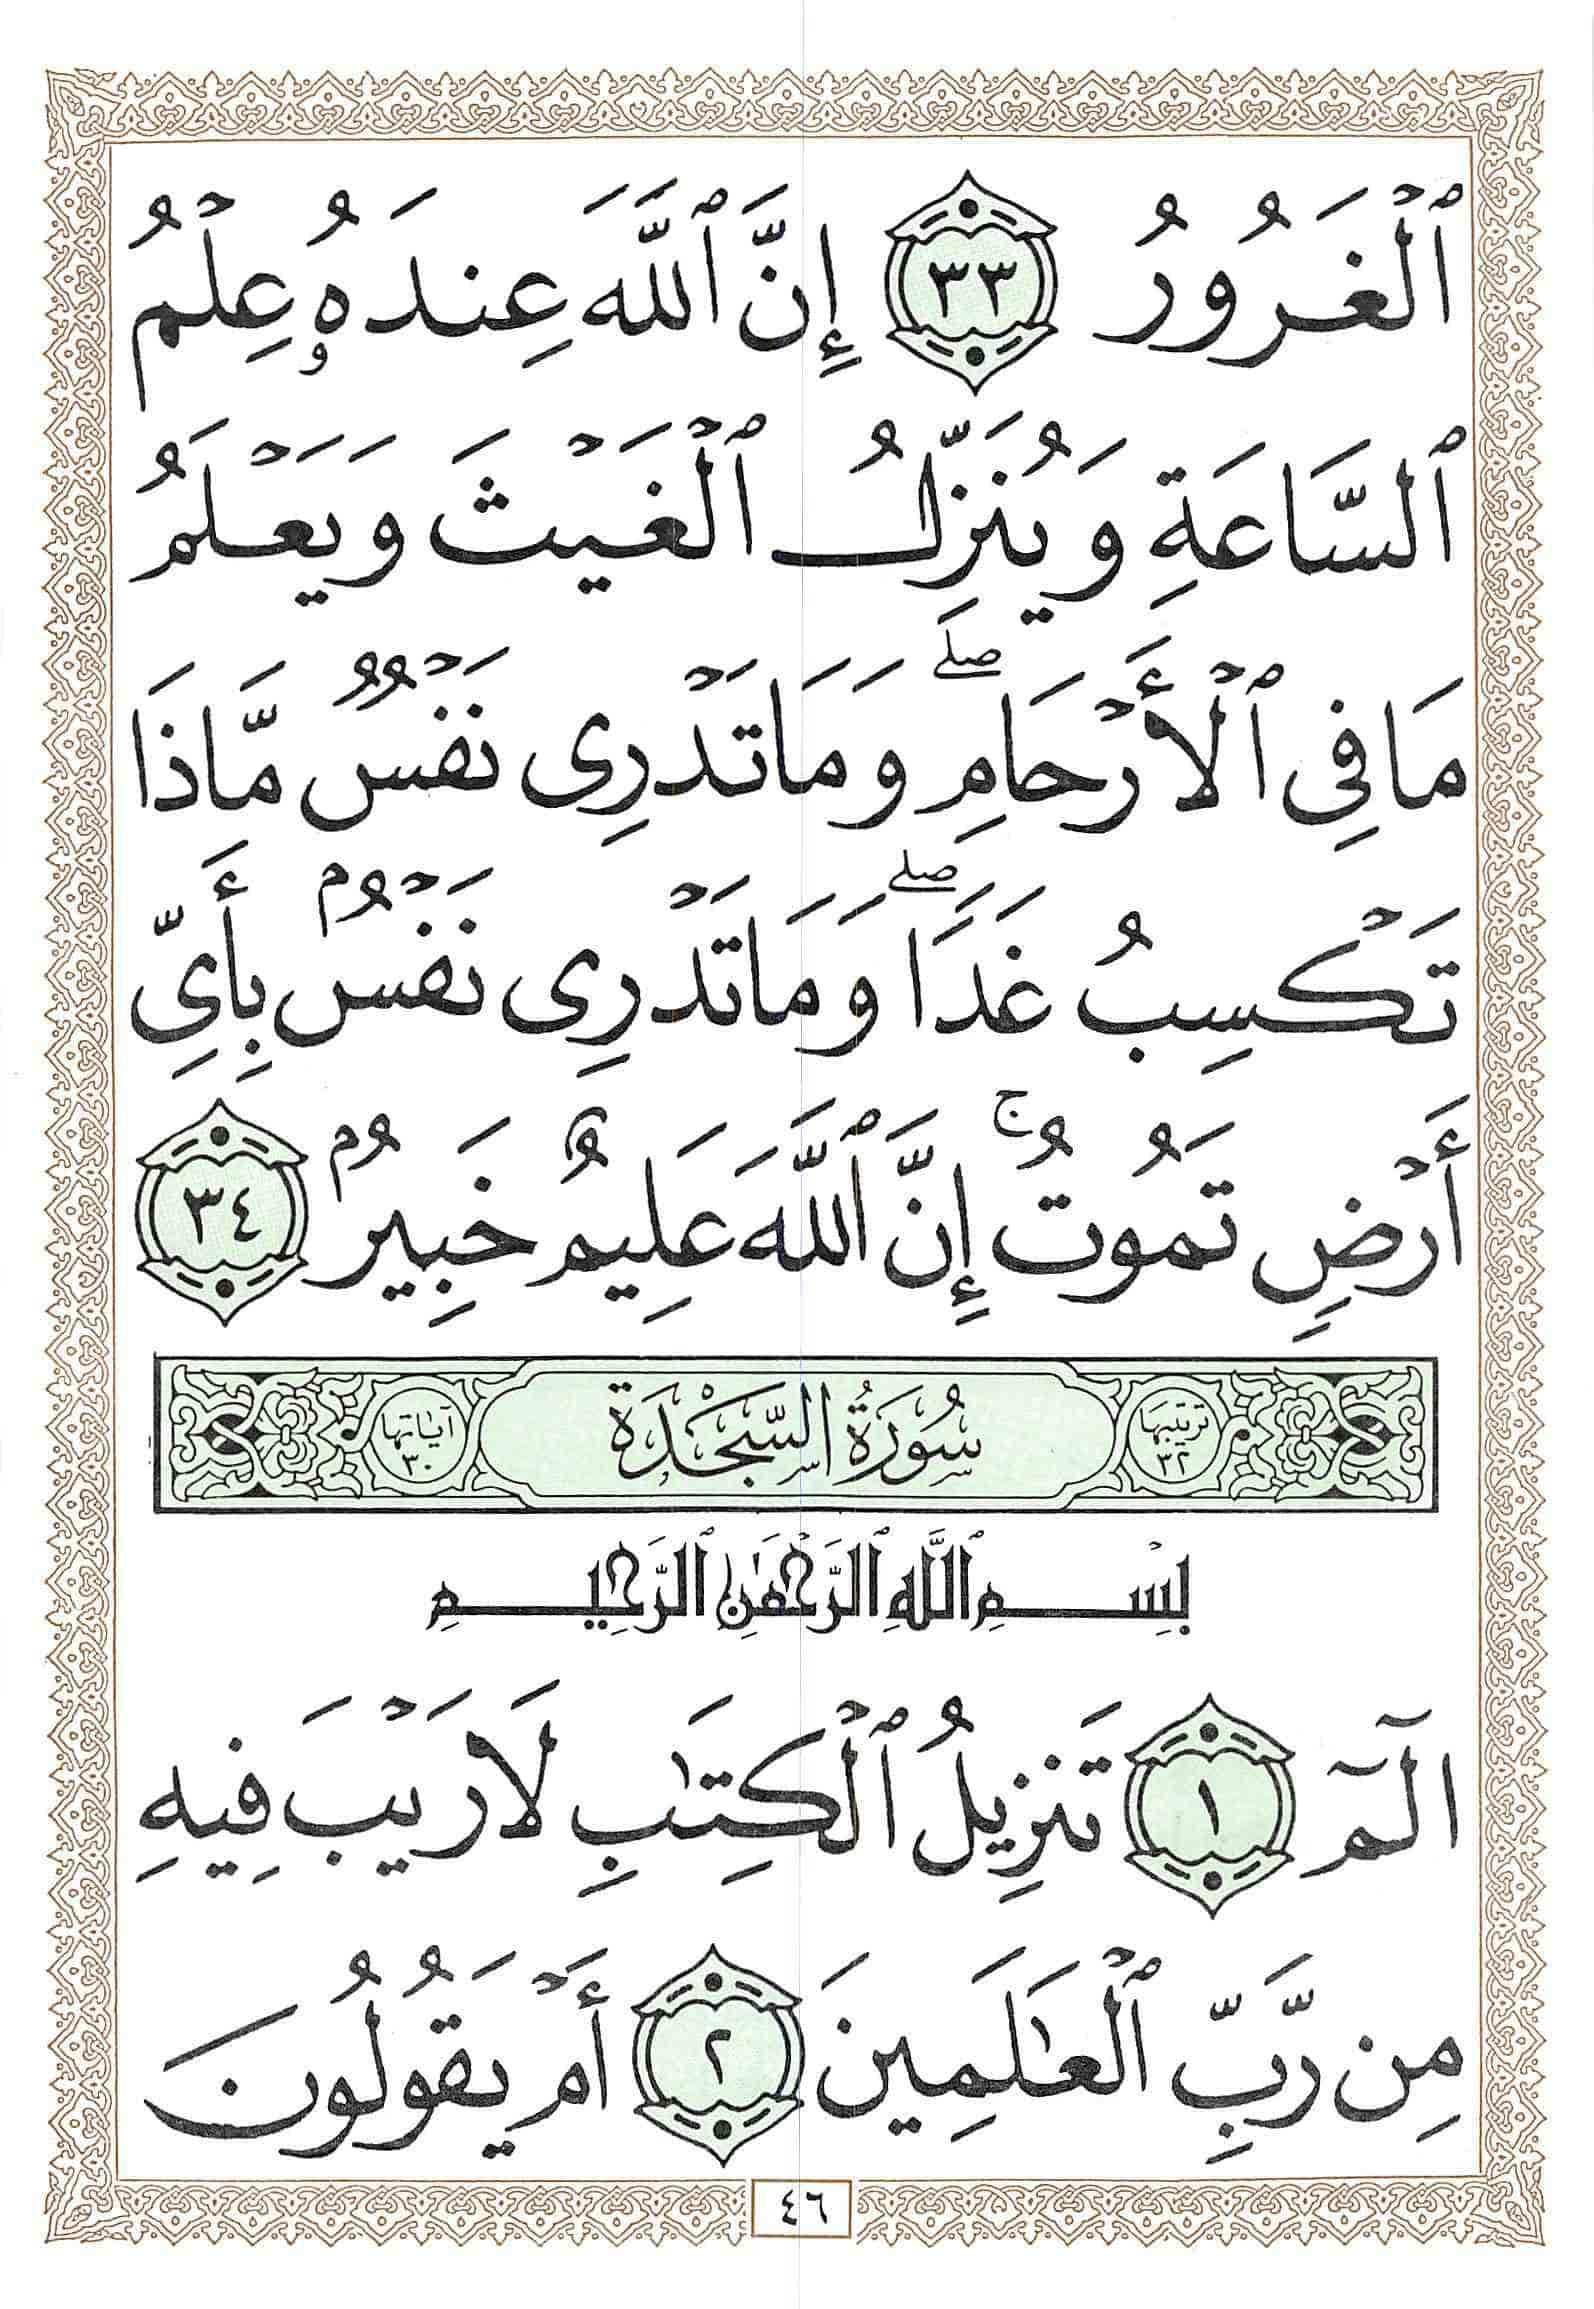 ٱلْغَرُورُ ٣٣ إِنَّ ٱللَّهَ عِندَهُۥ عِلْمُ
ٱلسَّاعَةِ وَيُنَزِّلُ ٱلْغَيْثَ وَيَعْلَمُ
مَا فِى ٱلْأَرْحَامِ ۖ وَمَا تَدْرِى نَفْسٌ مَّاذَا
تَكْسِبُ غَدًا ۖ وَمَا تَدْرِى نَفْسٌۢ بِأَىِّ
أَرْضٍ تَمُوتُ ۚ إِنَّ ٱللَّهَ عَلِيمٌ خَبِيرٌۢ ٣٤
ترتيبها ٣٢ سُورَةُ السَّجْدَةِ آياتها ٣٠
بِسْمِ ٱللَّهِ ٱلرَّحْمَٰنِ ٱلرَّحِيمِ
الٓمٓ ١ تَنزِيلُ ٱلْكِتَٰبِ لَا رَيْبَ فِيهِ
مِن رَّبِّ ٱلْعَٰلَمِينَ ٢ أَمْ يَقُولُونَ
٤٦